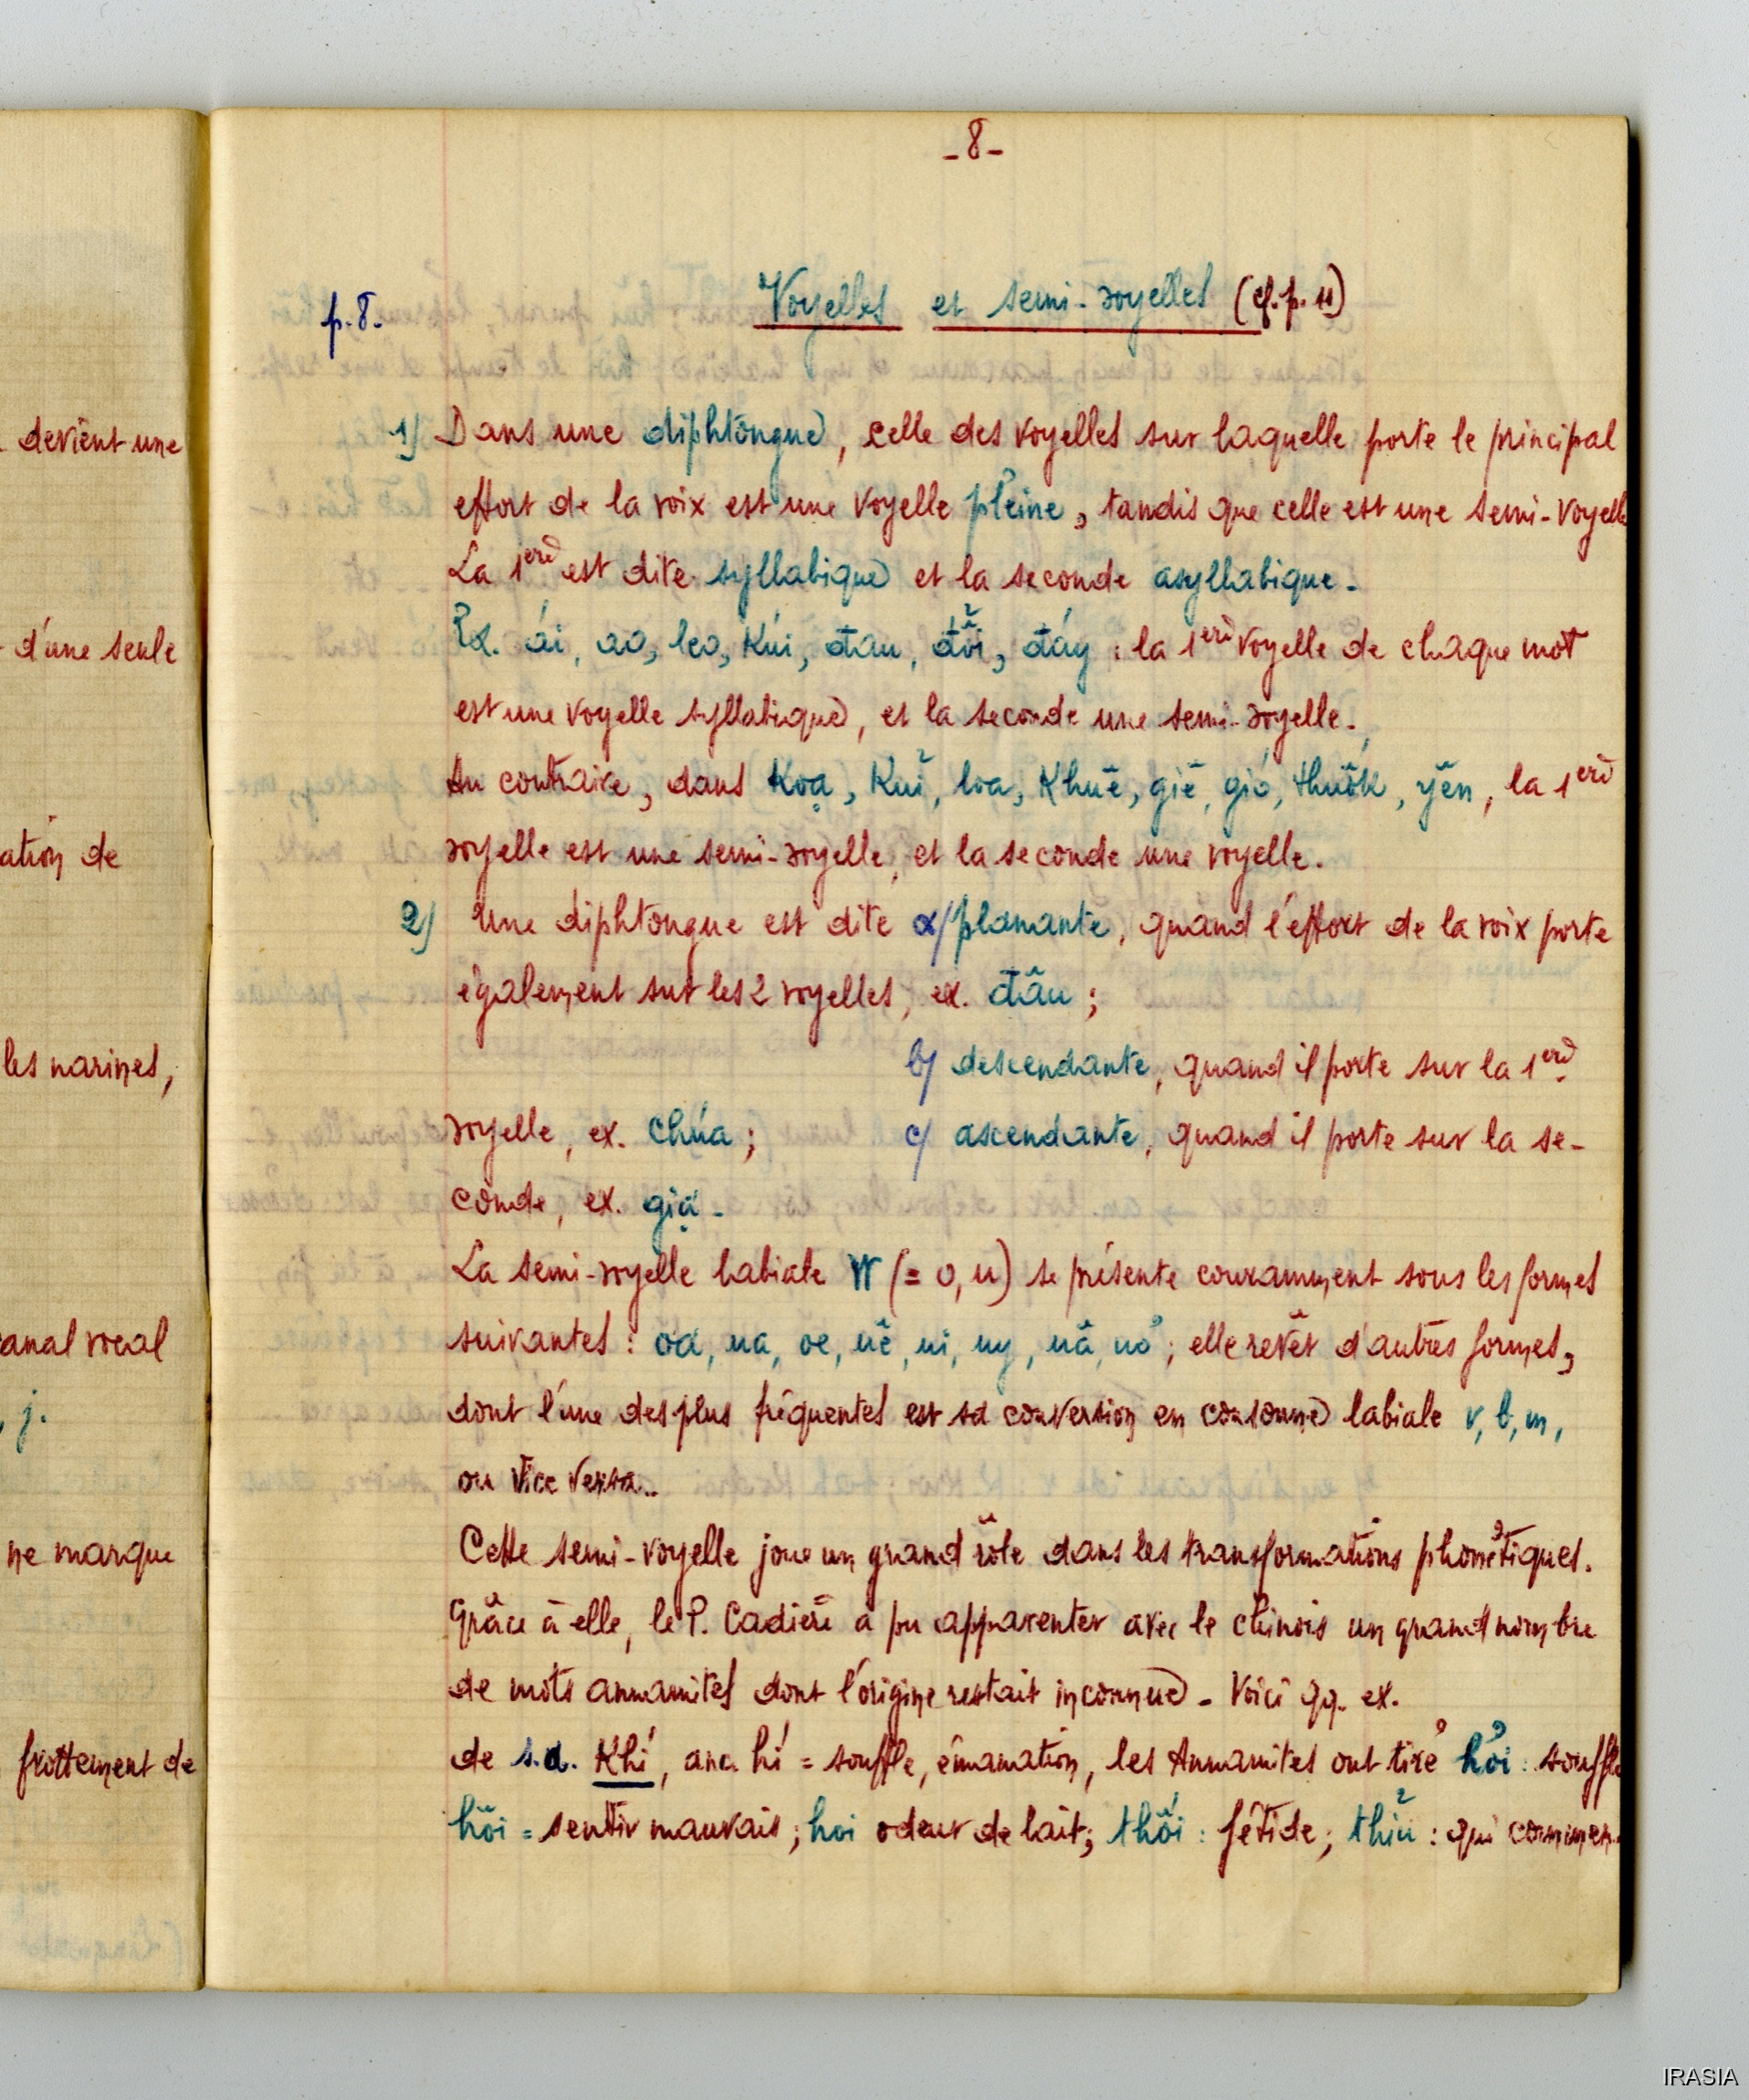 devient une
d'une seule
ation de
les narines,
anal vocal
, j.
ne marque
frottement de
-8-
p.8. Voyelles et semi-voyelles (cf. p. 11)
1) Dans une diphtongue, celle des voyelles sur laquelle porte le principal
effort de la voix est une voyelle pleine, tandis que celle est une semi-voyelle
La 1ère est dite syllabique et la seconde asyllabique.
Ex. ái, ao, leo, kúi, đau, đổi, đáy : la 1ère voyelle de chaque mot
est une voyelle syllabique, et la seconde une semi-voyelle.
Au contraire, dans koạ, kuĩ, loa, khuê, giê, gió, thuốk, yên, la 1ère
voyelle est une semi-voyelle, et la seconde une voyelle.
2) Une diphtongue est dite a/ planante, quand l'effort de la voix porte
également sur les 2 voyelles, ex. đâu ;
b/ descendante, quand il porte sur la 1ère
voyelle, ex. chúa ; c/ ascendante, quand il porte sur la se-
conde, ex. giạ.
La semi-voyelle labiale W (= o, u) se présente couramment sous les formes
suivantes : oa, ua, oe, uê, ui, uy, uâ, uơ ; elle revêt d'autres formes,
dont l'une des plus fréquentes est sa conversion en consonne labiale v, b, m,
ou vice versa..
Cette semi-voyelle joue un grand rôle dans les transformations phonétiques.
Grâce à elle, le P. Cadière a pu apparenter avec le chinois un grand nombre
de mots annamites dont l'origine restait inconnue - Voici qq. ex.
de s.a. Khí, anc. hí = souffle, émanation, les Annamites ont tiré hơi : souffle
hôi = sentir mauvais ; hoi odeur de lait ; thối : fétide ; thiu : qui commen-
IRASIA